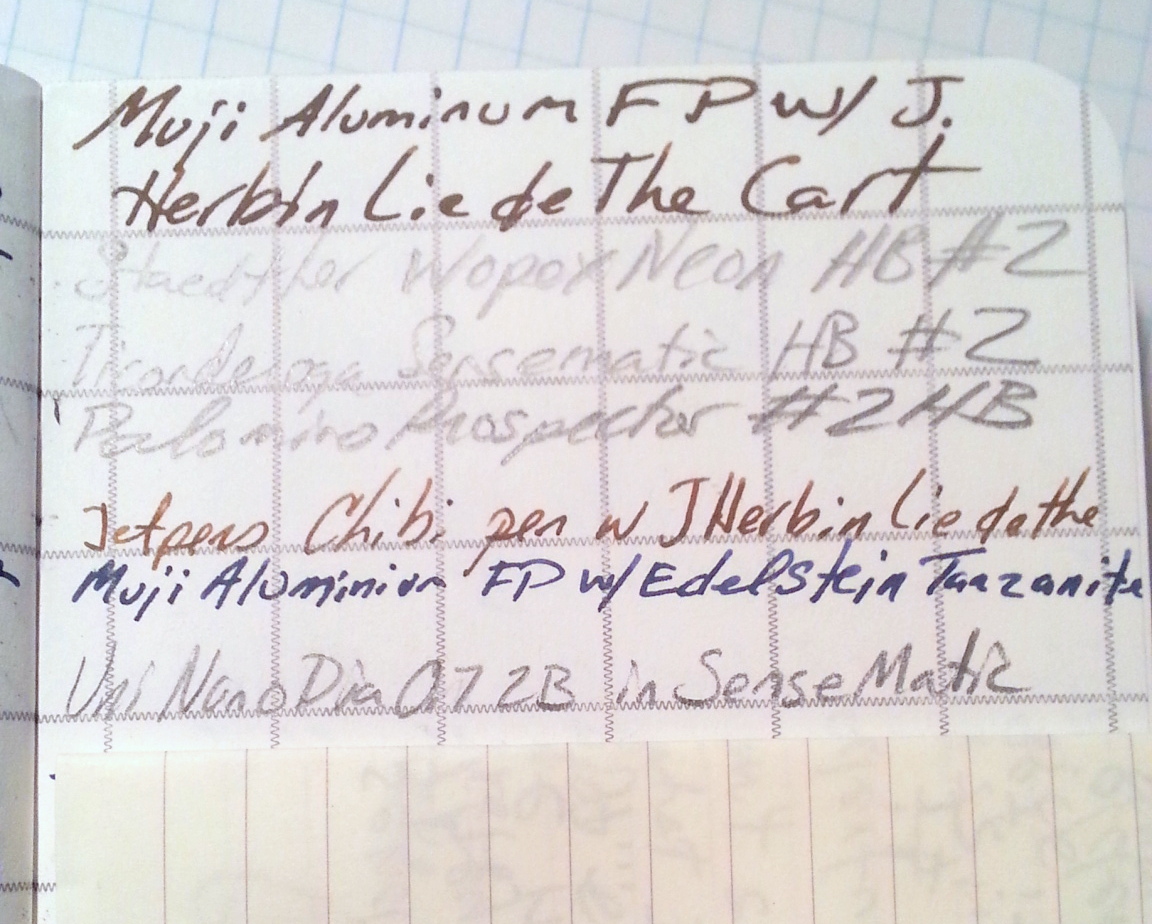 Muji Aluminum FP w/ J.
Herbin Lie de The Cart
Staedtler Wopex Neon HB #2
Ticonderoga Sensematic HB #2
Palomino Prospector #2 HB
Jetpens Chibi pen w J Herbin Lie de the
Muji Aluminium FP w/ Edelstein Tanzanite
Uni NanoDia 0.7 2B in SenseMatic